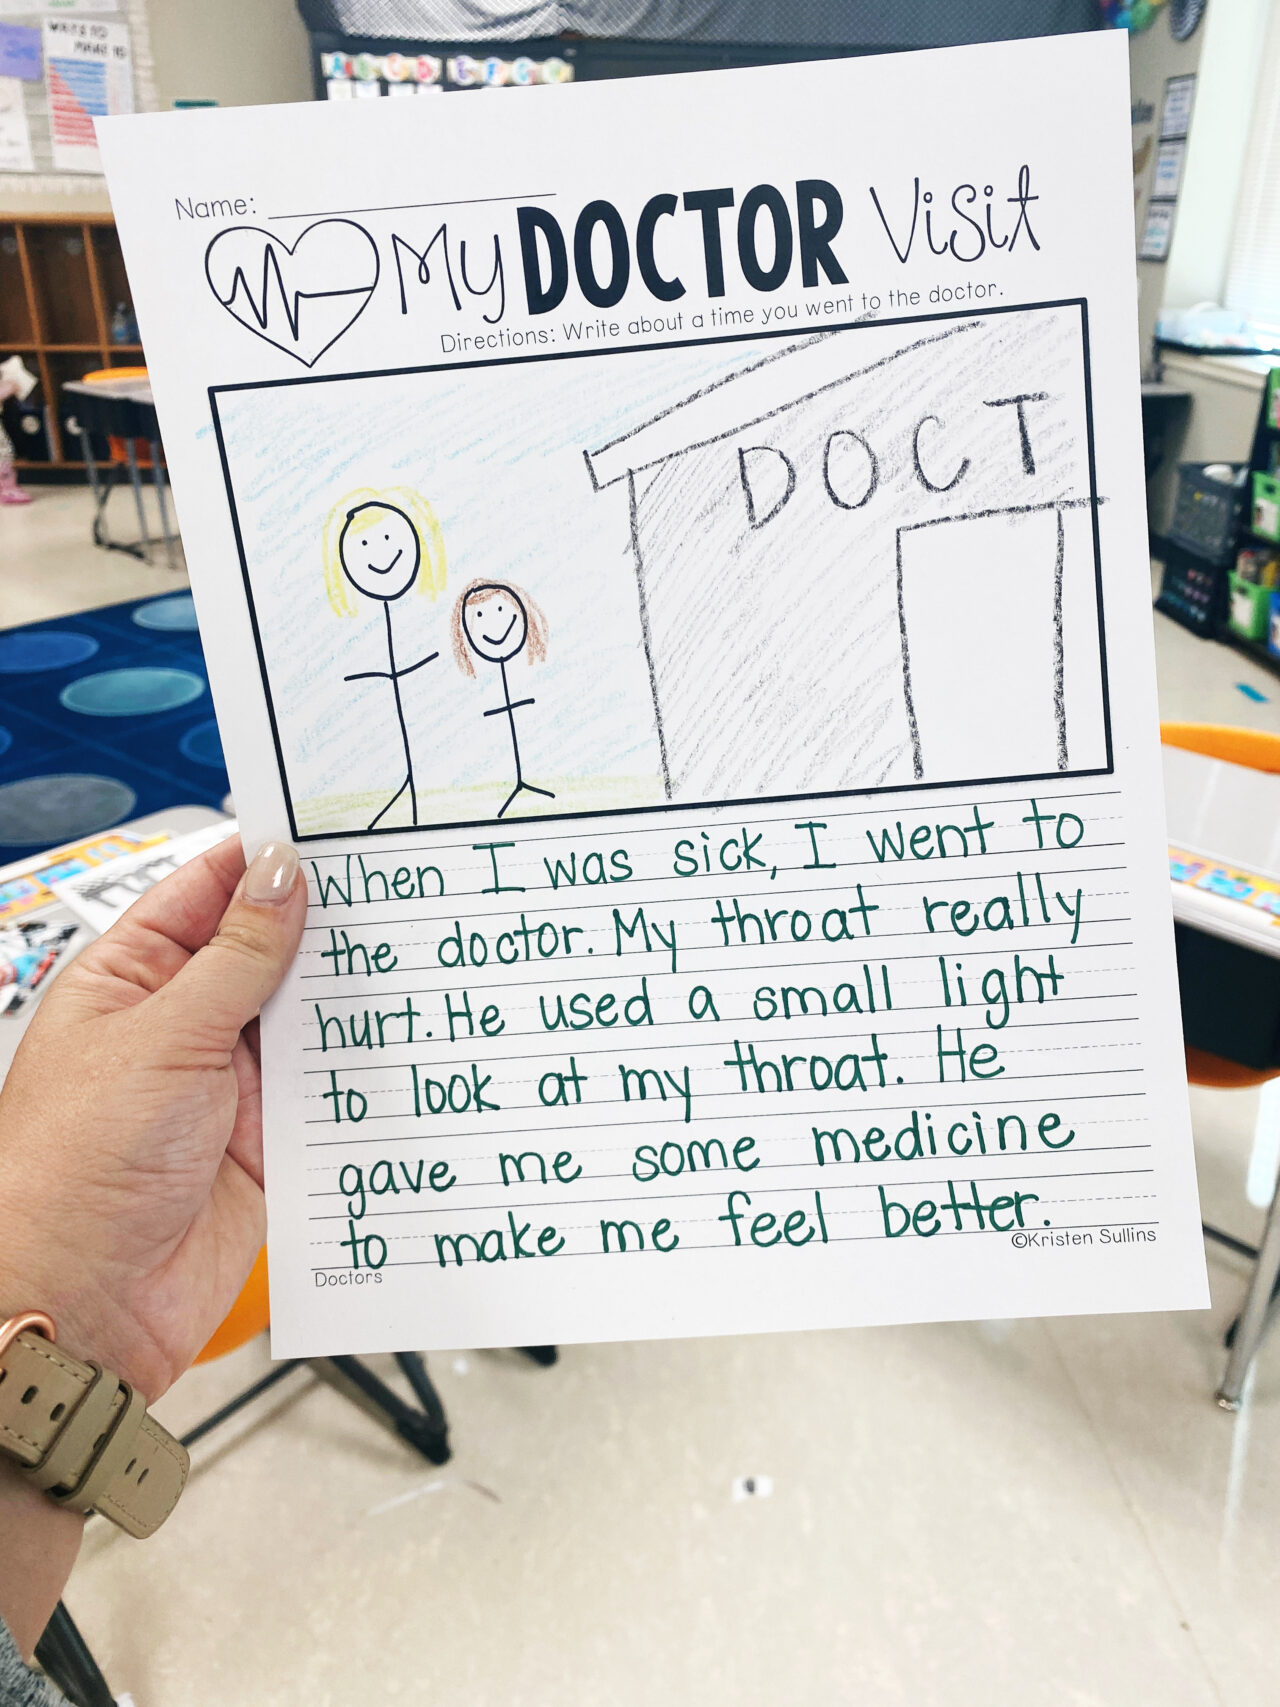 Name:
My DOCTOR Visit
Directions: Write about a time you went to the doctor.
DOCT
When I was sick, I went to
the doctor. My throat really
hurt. He used a small light
to look at my throat. He
gave me some medicine
to make me feel better.
©Kristen Sullins
Doctors